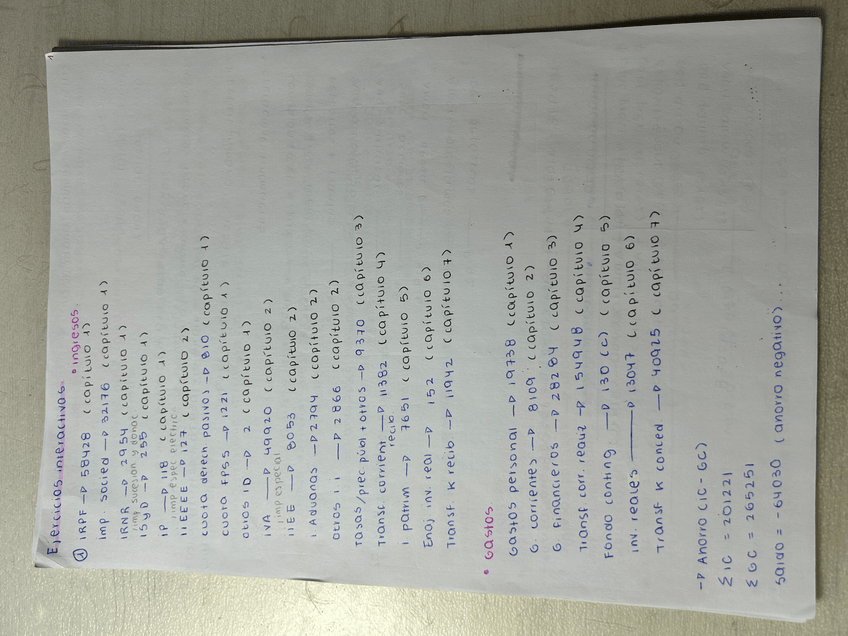 Ejercicios interactivos.
• ingresos.
① IRPF → 58428 (capítulo 1)
Imp. socied → 32176 (capítulo 1)
IRNR → 2954 (capítulo 1)
imp sucesion y donac
ISyD → 255 (capítulo 1)
IP → 118 (capítulo 1)
imp espec electric
IIEEEE → 127 (capítulo 2)
cuota derech pasivos → 810 (capítulo 1)
cuota FPSS → 1221 (capítulo 1)
otros ID → 2 (capítulo 1)
IVA → 49920 (capítulo 2)
imp especial
IIEE → 8053 (capítulo 2)
I Aduanas → 2794 (capítulo 2)
otros I I → 2866 (capítulo 2)
Tasas/prec públ + otros → 9370 (capítulo 3)
Transf. corrient recib → 11382 (capítulo 4)
I patrim → 7651 (capítulo 5)
Enaj. inv. real → 152 (capítulo 6)
Transf K recib → 11942 (capítulo 7)
• Gastos
Gastos personal → 19738 (capítulo 1)
G. corrientes → 8109 (capítulo 2)
G Financieros → 28284 (capítulo 3)
Transf corr. realiz → 154948 (capítulo 4)
Fondo conting → 130 (c) (capítulo 5)
inv. reales → 13047 (capítulo 6)
Transf K conced → 40925 (capítulo 7)
→ Ahorro (IC - GC)
Σ IC = 201221
Σ GC = 265251
Saldo = -64030 (ahorro negativo)...